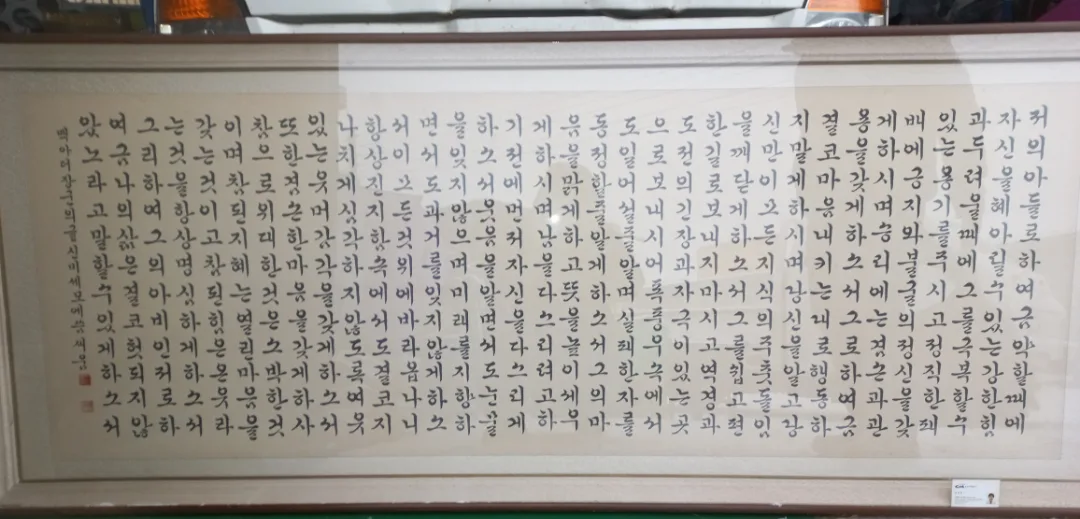 저의아들로하여금약할때에
자신을혜아릴수있는강한힘
과두려울때에그를극복할수
있는용기를주시고정직한패
배에긍지와불굴의정신을갖
게하시며승리에는겸손과관
용을갖게하소서그로하여금
결코마음내키는대로행동하
지말게하시며당신을알고당
신만이모든지식의주춧돌임
을깨닫게하소서그를쉽고편
한길로보내지마시고역경과
도전의긴장과자극이있는곳
으로보내시어폭풍우속에서
도일어설줄알며실패한자를
동정할줄알게하소서그의마
음을맑게하고뜻을높이세우
게하시며남을다스리려고하
기전에먼저자신을다스리게
하소서웃음을알면서도눈물
을잊지않으며미래를지향하
면서도과거를잊지않게하소
서이모든것위에바라옵나니
항상진지함속에서도결코지
나치게심각하지않도록여유
있는유머감각을갖게하소서
또한겸손한마음을갖게하사
참으로위대한것은소박한것
이며참된지혜는열린마음을
갖는것이고참된힘은온유라
는것을항상명심하게하소서
그리하여그의아비인저로하
여금나의삶은결코헛되지않
았노라고말할수있게하소서
맥아더장군의